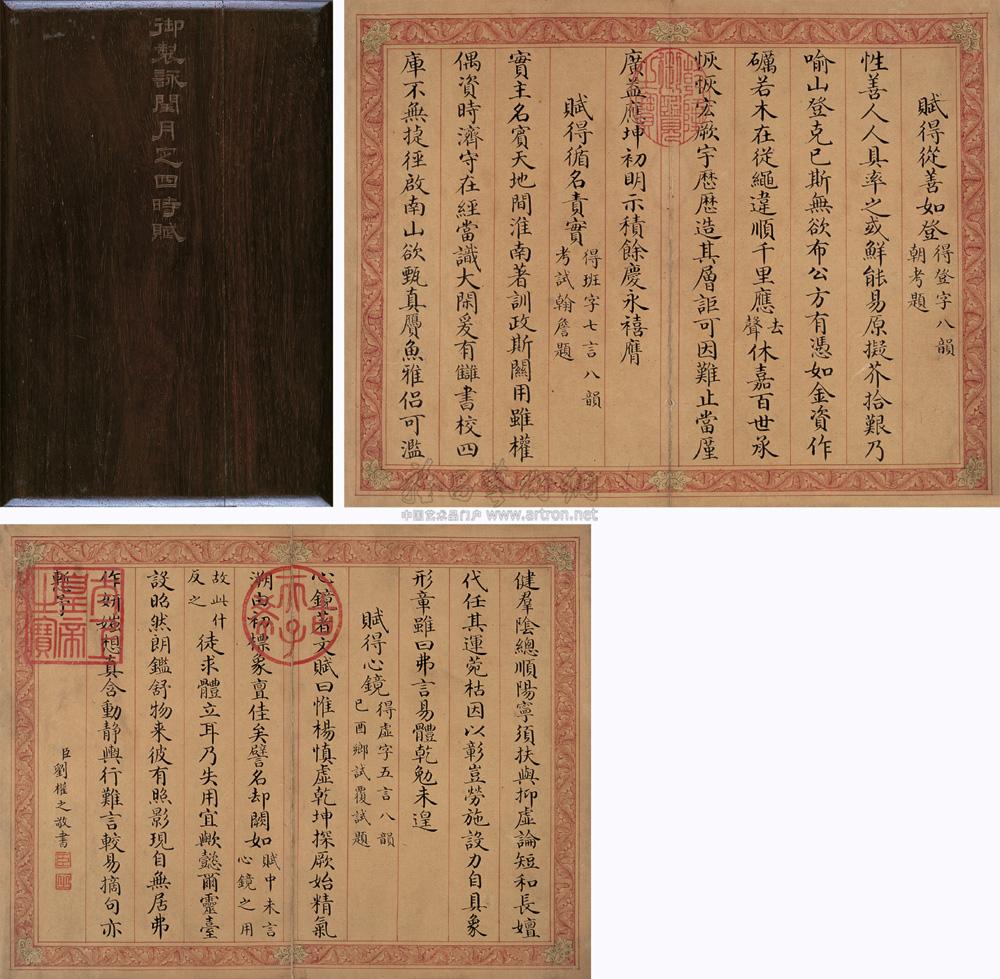 御製詠閏月定四時賦
賦得從善如登得登字八韻朝考題
性善人人具率之或鮮能易原擬芥拾艱乃
喻山登克已斯無欲布公方有憑如金資作
礪若木在從繩違順千里應去聲休嘉百世承
恢恢宏厥宇歷歷造其層詎可因難止當厪
廣益應坤初明示積餘慶永禧膺
賦得循名責實得班字七言八韻考試翰詹題
實主名賓天地間淮南著訓政斯關用雖權
偶資時濟守在經當識大閑爰有讎書校四
庫不無捷徑啟南山欲甄真贋魚雅侶可濫
健羣陰總順陽寧須扶與抑虛論短和長嬗
代任其運菀枯因以彰豈勞施設力自具象
形章雖曰弗言易體乾勉未遑
賦得心鏡得虛字五言八韻己酉鄉試覆試題
心鏡著文賦曰惟楊慎虛乾坤探厥始精氣
溯由初標象亶佳矣譬名却闕如賦中未言心鏡之用
故此什反之徒求體立耳乃失用宜歟懿爾靈臺
設昭然朗鑑舒物来彼有照影現自無居弗
作妍媸想真含動靜輿行難言較易摘句亦
慙予
臣劉權之敬書
太上皇帝之寶
中国艺术品门户 www.artron.net